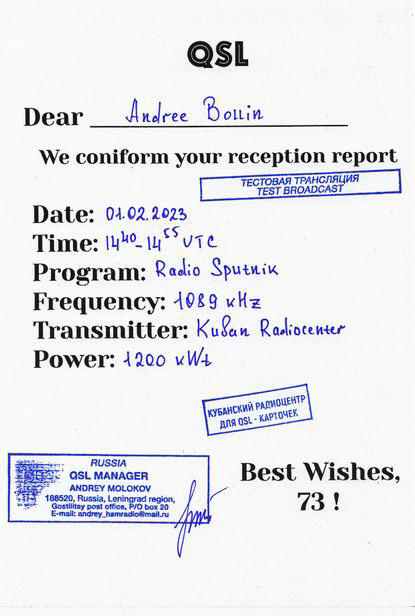 QSL
Dear Andree Bollin
We coniform your reception report
ТЕСТОВАЯ ТРАНСЛЯЦИЯ
TEST BROADCAST
Date: 01.02.2023
Time: 14⁴⁰-14⁵⁵ UTC
Program: Radio Sputnik
Frequency: 1089 кHz
Transmitter: Kuban Radiocenter
Power: 1200 кWt
КУБАНСКИЙ РАДИОЦЕНТР
ДЛЯ QSL - КАРТОЧЕК
RUSSIA
QSL MANAGER
ANDREY MOLOKOV
188520, Russia, Leningrad region,
Gostilitsy post office, P/O box 20
E-mail: andrey_hamradio@mail.ru
Best Wishes,
73 !